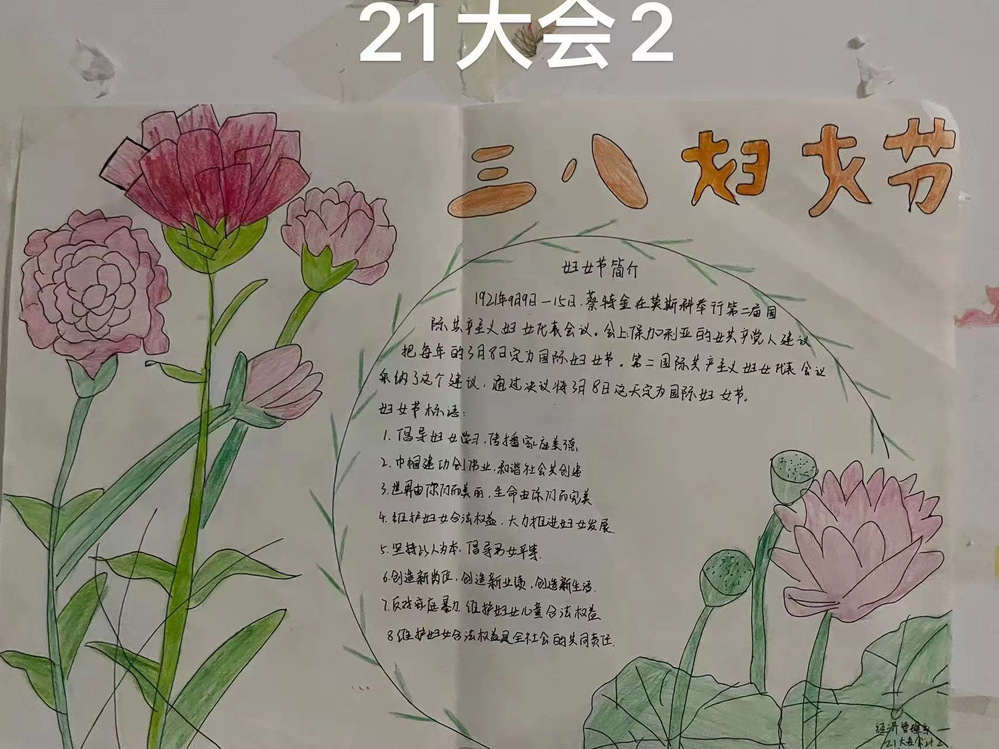 21大会2
三八妇女节
妇女节简介
1921年9月9日—15日，蔡特金在莫斯科举行第二届国
际共产主义妇女代表会议。会上保加利亚的女共产党人建议
把每年的3月8日定为国际妇女节。第二国际共产主义妇女代表会议
采纳了这个建议，通过决议将3月8日这天定为国际妇女节。
妇女节标语：
1. 倡导妇女学习，传播家庭美德
2. 巾帼建功创伟业，和谐社会共创建
3. 世界由你们而美丽，生命由你们而完美
4. 维护妇女合法权益，大力推进妇女发展
5. 坚持以人为本，倡导男女平等
6. 创造新岗位，创造新业绩，创造新生活
7. 反对家庭暴力 维护妇女儿童合法权益
8 维护妇女合法权益是全社会的共同责任
经济管理系
21大会计2